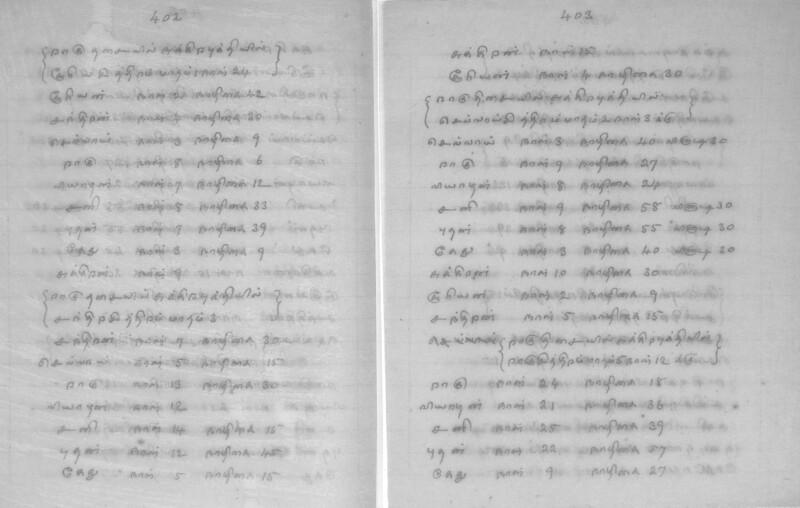 402
ராகு திசையில் சுக்கிரபுத்தியில்
சூரியன் நாள் 2 நாழிகை 42
சந்திரன் நாள் நாழிகை 30
செவ்வாய் நாள் 3 நாழிகை 9
ராகு நாள் 8 நாழிகை 6
வியாழன் நாள் 7 நாழிகை 12
சனி நாள் 8 நாழிகை 33
புதன் நாள் 7 நாழிகை 39
கேது நாள் 3 நாழிகை 9
சுக்கிரன் நாள் 9
ராகு திசையில் சுக்கிரபுத்தியில்
சந்திரன் நாள் 7 நாழிகை 30
செவ்வாய் நாள் 5 நாழிகை 15
ராகு நாள் 13 நாழிகை 30
வியாழன் நாள் 12
சனி நாள் 14 நாழிகை 15
புதன் நாள் 12 நாழிகை 45
கேது நாள் 5 நாழிகை 15
403
சுக்கிரன் நாள் 15
சூரியன் நாள் 4 நாழிகை 30
ராகு திசையில் சுக்கிரபுத்தியில்
செவ்வாய் நாள் 3 நாழிகை 40 வினாடி 30
ராகு நாள் 9 நாழிகை 27
வியாழன் நாள் 8 நாழிகை 24
சனி நாள் 9 நாழிகை 58 வினாடி 30
புதன் நாள் 8 நாழிகை 55 வினாடி 30
கேது நாள் 3 நாழிகை 40 வினாடி 30
சுக்கிரன் நாள் 10 நாழிகை 30
சூரியன் நாள் 2 நாழிகை 9
சந்திரன் நாள் 5 நாழிகை 15
ராகு திசையில் சுக்கிரபுத்தியில்
ராகு நாள் 24 நாழிகை 18
வியாழன் நாள் 21 நாழிகை 36
சனி நாள் 25 நாழிகை 39
புதன் நாள் 22 நாழிகை 57
கேது நாள் 9 நாழிகை 27